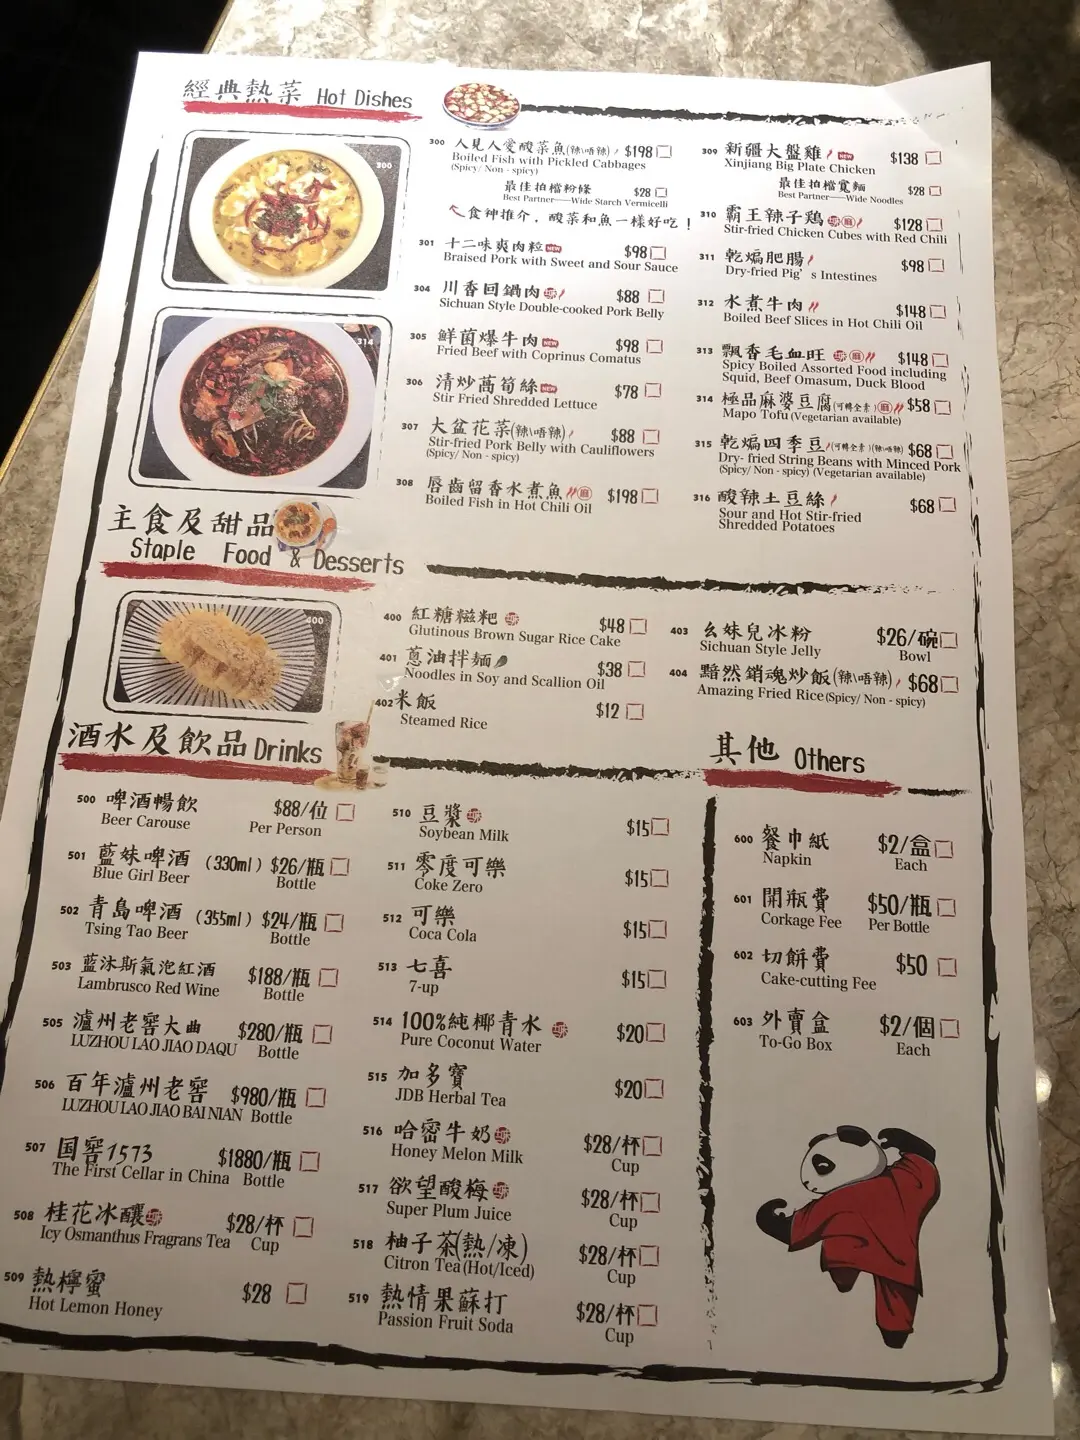 經典熱菜 Hot Dishes
300
300 人見人愛酸菜魚(辣\唔辣) $198
Boiled Fish with Pickled Cabbages
(Spicy/ Non - spicy)
最佳拍檔粉條 $28
Best Partner——Wide Starch Vermicelli
食神推介，酸菜和魚一樣好吃！
301 十二味爽肉粒 NEW $98
Braised Pork with Sweet and Sour Sauce
304 川香回鍋肉 $88
Sichuan Style Double-cooked Pork Belly
305 鮮菌爆牛肉 NEW $98
Fried Beef with Coprinus Comatus
306 清炒萵筍絲 NEW $78
Stir Fried Shredded Lettuce
307 大盆花菜(辣\唔辣) $88
Stir-fried Pork Belly with Cauliflowers
(Spicy/ Non - spicy)
308 唇齒留香水煮魚 麻 $198
Boiled Fish in Hot Chili Oil
309 新疆大盤雞 NEW $138
Xinjiang Big Plate Chicken
最佳拍檔寬麵 $28
Best Partner——Wide Noodles
310 霸王辣子鷄 麻 $128
Stir-fried Chicken Cubes with Red Chili
311 乾煸肥腸 $98
Dry-fried Pig's Intestines
312 水煮牛肉 $148
Boiled Beef Slices in Hot Chili Oil
313 飄香毛血旺 麻 $148
Spicy Boiled Assorted Food including
Squid, Beef Omasum, Duck Blood
314 極品麻婆豆腐(可轉全素) 麻 $58
Mapo Tofu (Vegetarian available)
315 乾煸四季豆(可轉全素)(辣\唔辣) $68
Dry- fried String Beans with Minced Pork
(Spicy/ Non - spicy) (Vegetarian available)
316 酸辣土豆絲 $68
Sour and Hot Stir-fried
Shredded Potatoes
314
主食及甜品
Staple Food & Desserts
400
400 紅糖糍粑 $48
Glutinous Brown Sugar Rice Cake
401 蔥油拌麵 $38
Noodles in Soy and Scallion Oil
402 米飯 $12
Steamed Rice
403 幺妹兒冰粉 $26/碗
Sichuan Style Jelly Bowl
404 黯然銷魂炒飯(辣\唔辣) $68
Amazing Fried Rice(Spicy/ Non - spicy)
酒水及飲品 Drinks
500 啤酒暢飲 $88/位
Beer Carouse Per Person
501 藍妹啤酒 (330ml) $26/瓶
Blue Girl Beer Bottle
502 青島啤酒 (355ml) $24/瓶
Tsing Tao Beer Bottle
503 藍沐斯氣泡紅酒 $188/瓶
Lambrusco Red Wine Bottle
505 瀘州老窖大曲 $280/瓶
LUZHOU LAO JIAO DAQU Bottle
506 百年瀘州老窖 $980/瓶
LUZHOU LAO JIAO BAI NIAN Bottle
507 国窖1573 $1880/瓶
The First Cellar in China Bottle
508 桂花冰釀 $28/杯
Icy Osmanthus Fragrans Tea Cup
509 熱檸蜜 $28
Hot Lemon Honey
510 豆漿 $15
Soybean Milk
511 零度可樂 $15
Coke Zero
512 可樂 $15
Coca Cola
513 七喜 $15
7-up
514 100%純椰青水 $20
Pure Coconut Water
515 加多寶 $20
JDB Herbal Tea
516 哈密牛奶 $28/杯
Honey Melon Milk Cup
517 欲望酸梅 $28/杯
Super Plum Juice Cup
518 柚子茶(熱/凍) $28/杯
Citron Tea (Hot/Iced) Cup
519 熱情果蘇打 $28/杯
Passion Fruit Soda Cup
其他 Others
600 餐巾紙 $2/盒
Napkin Each
601 開瓶費 $50/瓶
Corkage Fee Per Bottle
602 切餅費 $50
Cake-cutting Fee
603 外賣盒 $2/個
To-Go Box Each